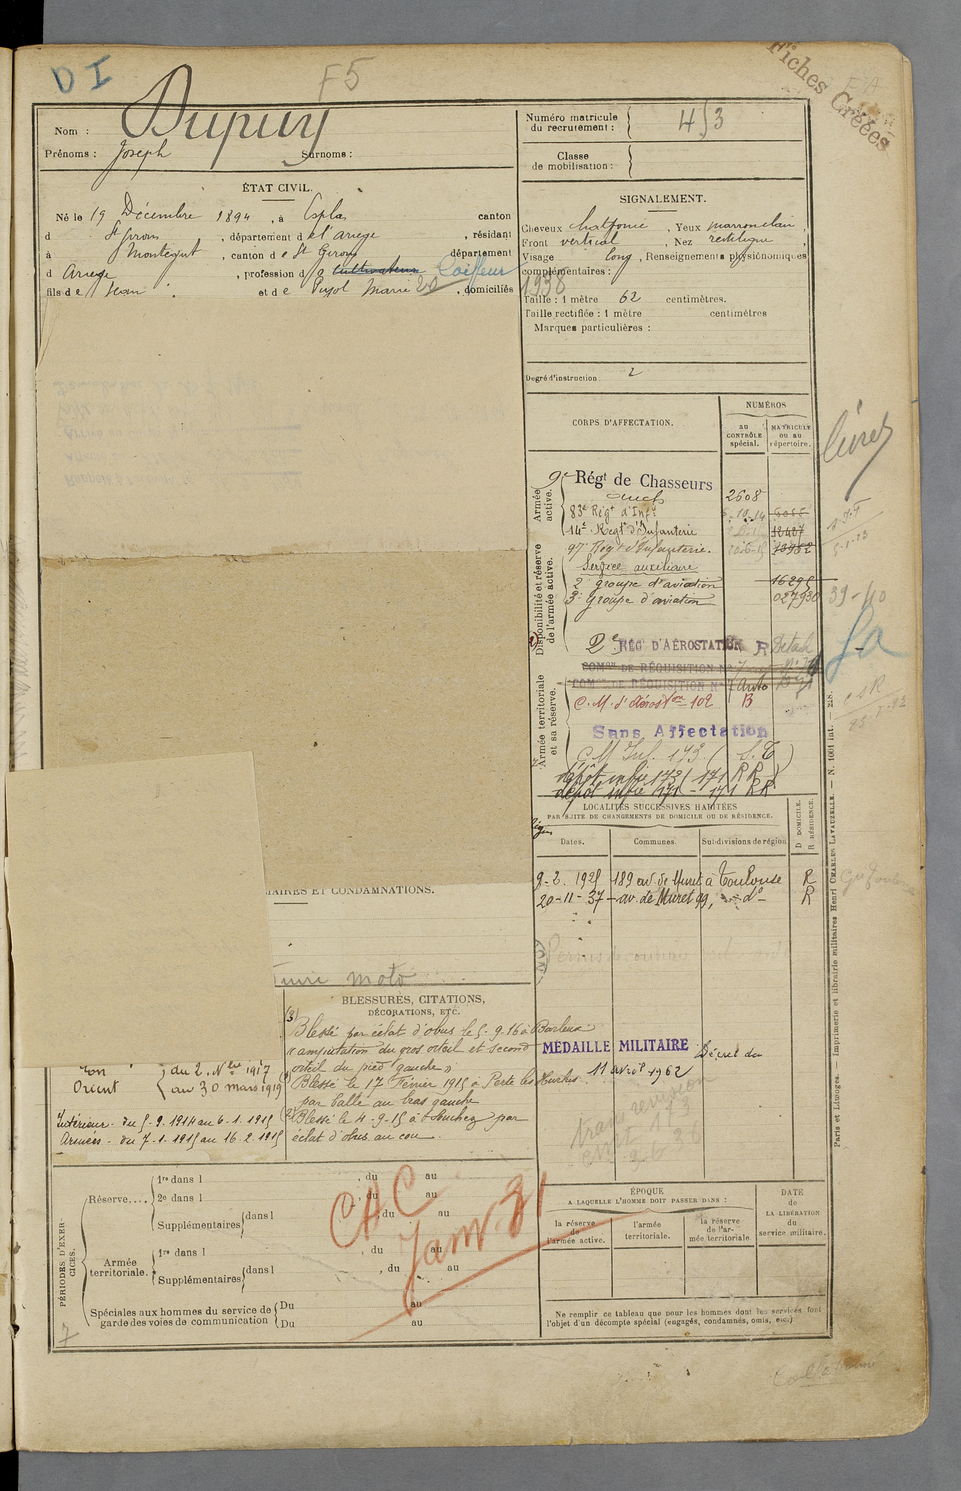 DI
F5
Fiches Créées
Nom : Dupuy
Prénoms : Joseph Surnoms :
Numéro matricule
du recrutement : 453
Classe
de mobilisation :
ÉTAT CIVIL.
Né le 19 Décembre 1894, à Esplas canton
d St Girons, département de l'Ariège, résidant
à Montégut, canton de St Girons département
d Ariège, profession de cultivateur Coiffeur
fils de Jean et de Pujol Marie 20, domiciliés
SIGNALEMENT.
Cheveux chatfoncé, Yeux marron clair,
Front vertical, Nez rectiligne,
Visage long, Renseignements physionomiques
complémentaires :
1938
Taille : 1 mètre 62 centimètres.
Taille rectifiée : 1 mètre centimètres
Marques particulières :
Degré d'instruction : 2
CORPS D'AFFECTATION.
NUMÉROS
au
CONTRÔLE
spécial.
MATRICULE
OU AU
répertoire.
livret
Armée
active.
9e Régt de Chasseurs
Auch
2608
83e Régt d'Infie
14e Régt d'Infanterie
97e Régt d'Infanterie.
Service auxiliaire
Disponibilité et réserve
de l'armée active.
2e groupe d'aviation 16295
3e groupe d'aviation 027930
39-40
2e RÉGt D'AÉROSTATION R Détach
COMon DE RÉQUISITION No 7
COMon DE RÉQUISITION No 7 Auto
Armée territoriale
et sa réserve.
C. M. d'Aéroston 102 B
Sans Affectation
C M Inf. 173 (S.T)
dépôt infie 173 (171 RR)
dépôt infie 171 - 171 RR
LOCALITÉS SUCCESSIVES HABITÉES
PAR SUITE DE CHANGEMENTS DE DOMICILE OU DE RÉSIDENCE.
Dates. Communes. Subdivisions de région
D DOMICILE.
R RÉSIDENCE.
9-2. 1925 189 av. de Muret à Toulouse R
20-11-37 av. de Muret 99, do R
AIRES ET CONDAMNATIONS.
moto
BLESSURES, CITATIONS,
DÉCORATIONS, ETC.
(3) Blessé par éclat d'obus le 5-9-16 à Barleux
"amputation du gros orteil et second
orteil du pied gauche"
Blessé le 17 Février 1915 à Perte les Hurlus
par balle au bras gauche
(2) Blessé le 4-9-15 à Souchez par
éclat d'obus au cou.
MÉDAILLE MILITAIRE Décret du
11 avril 1962
Orient
du 2. Nbre 1917
au 30 mars 1919
Intérieur - du 5-9-1914 au 6-1-1915
Armées - du 7-1-1915 au 16-2-1915
PÉRIODES D'EXER-
CICES.
Réserve....
1re dans l , du au
2e dans l , du au
Supplémentaires dans l , du au
Armée
territoriale.
1re dans l , du au
Supplémentaires dans l , du au
Spéciales aux hommes du service de
garde des voies de communication
Du au
Du au
CAC
Janv. 31
7
ÉPOQUE
A LAQUELLE L'HOMME DOIT PASSER DANS :
la réserve
de
l'armée active.
l'armée
territoriale.
la réserve
de l'ar-
mée territoriale
DATE
de
LA LIBÉRATION
du
service militaire.
Ne remplir ce tableau que pour les hommes dont les services font
l'objet d'un décompte spécial (engagés, condamnés, omis, etc.)
Paris et Limoges. — Imprimerie et librairie militaires Henri CHARLES-LAVAUZELLE. — N. 1001 int. 218.